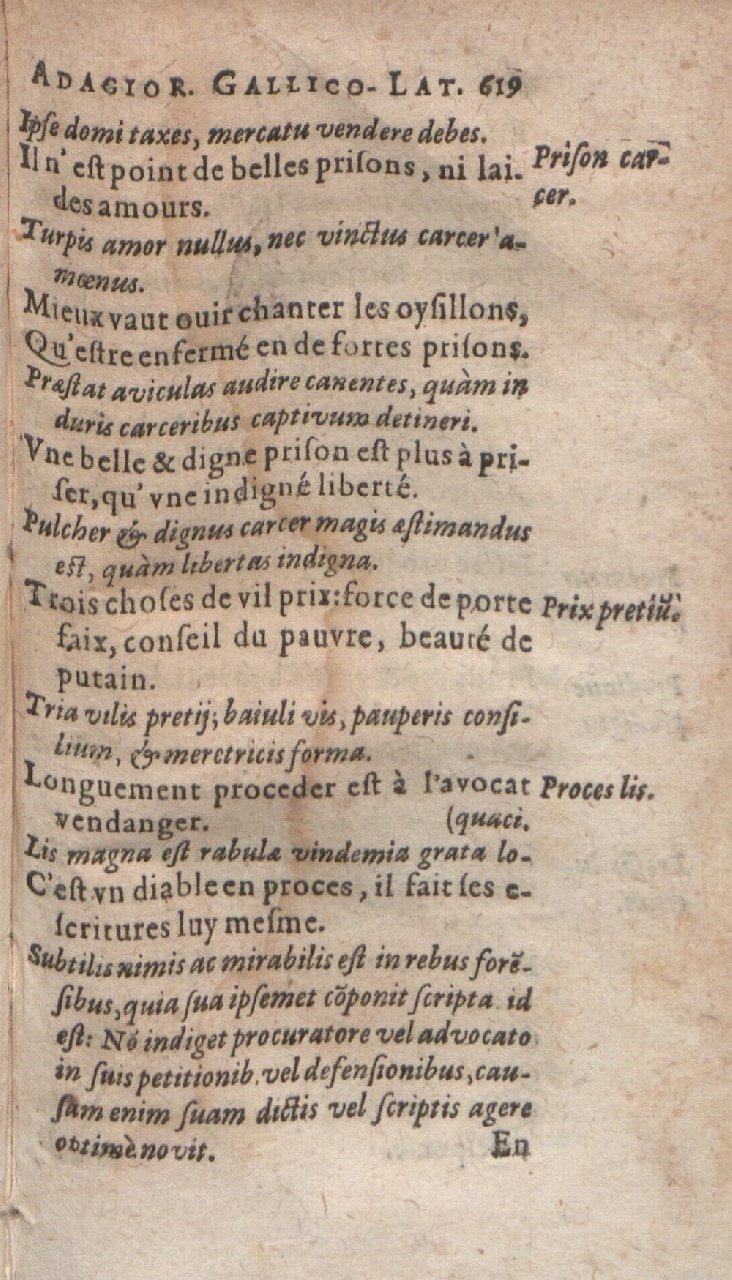 ADAGIOR. GALLICO-LAT. 619
Ipſe domi taxes, mercatu vendere debes.
Il n'eſt point de belles priſons, ni lai-
des amours.
Priſon car-
cer.
Turpis amor nullus, nec vinctus carcer a-
mœnus.
Mieux vaut ouir chanter les oyſillons,
Qu'eſtre enfermé en de fortes priſons.
Præſtat aviculas audire canentes, quàm in
duris carceribus captivum detineri.
Vne belle & digne priſon eſt plus à pri-
ſer, qu' vne indigné liberté.
Pulcher & dignus carcer magis æſtimandus
eſt, quàm libertas indigna.
Trois choſes de vil prix: force de porte
faix, conſeil du pauvre, beauté de
putain.
Prix pretiũ.
Tria vilis pretij; baiuli vis, pauperis conſi-
lium, & meretricis forma.
Longuement proceder eſt à l'avocat
vendanger. (quaci.
Proces lis.
Lis magna eſt rabulæ vindemia grata lo-
C'eſt vn diable en proces, il fait ſes e-
ſcritures luy meſme.
Subtilis nimis ac mirabilis eſt in rebus forẽ-
ſibus, quia ſua ipſemet cõponit ſcripta id
eſt: Nõ indiget procuratore vel advocato
in ſuis petitionib. vel defenſionibus, cau-
ſam enim ſuam dictis vel ſcriptis agere
optimè novit. En